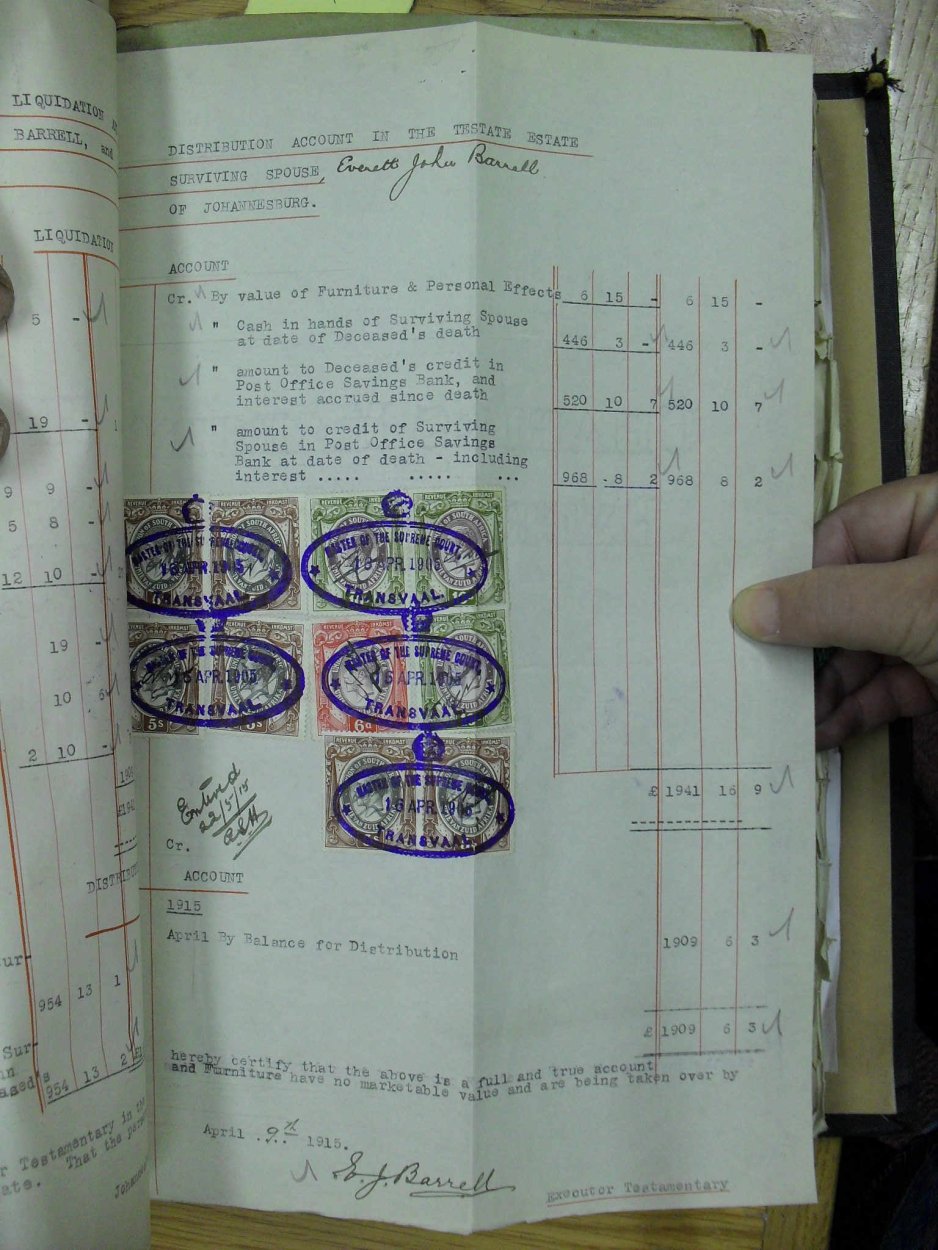 LIQUIDATION
BARRELL, and
LIQUIDATION
5 -
19 -
9 9 -
5 8 -
12 10 -
19 -
10 6
2 10 -
£1941
DISTRIBU
954 13 1
Sur-
954 13 2
r Testamentary in the
ate. That the pers
Johannes
DISTRIBUTION ACCOUNT IN THE TESTATE ESTATE
SURVIVING SPOUSE, Everett John Barrell
OF JOHANNESBURG.
ACCOUNT
Cr. By value of Furniture & Personal Effects 6 15 - 6 15 -
" Cash in hands of Surviving Spouse
at date of Deceased's death 446 3 - 446 3 -
" amount to Deceased's credit in
Post Office Savings Bank, and
interest accrued since death 520 10 7 520 10 7
" amount to credit of Surviving
Spouse in Post Office Savings
Bank at date of death - including
interest ..... ..... ... 968 8 2 968 8 2
REVENUE INKOMST REVENUE INKOMST
MASTER OF THE SUPREME COURT,
16 APR 1905
TRANSVAAL.
REVENUE INKOMST REVENUE INKOMST
MASTER OF THE SUPREME COURT,
16 APR 1905
TRANSVAAL.
MASTER OF THE SUPREME COURT,
16 APR 1905
TRANSVAAL.
5s 5s
REVENUE INKOMST
MASTER OF THE SUPREME COURT,
16 APR 1905
TRANSVAAL.
6d
REVENUE INKOMST REVENUE INKOMST
MASTER OF THE SUPREME COURT,
16 APR 1905
TRANSVAAL.
£ 1941 16 9
Entered
22/5/15
Cr.
ACCOUNT
1915
April By Balance for Distribution 1909 6 3
£ 1909 6 3
hereby certify that the above is a full and true account
and Furniture have no marketable value and are being taken over by
April 9th 1915.
E. J. Barrell
Executor Testamentary